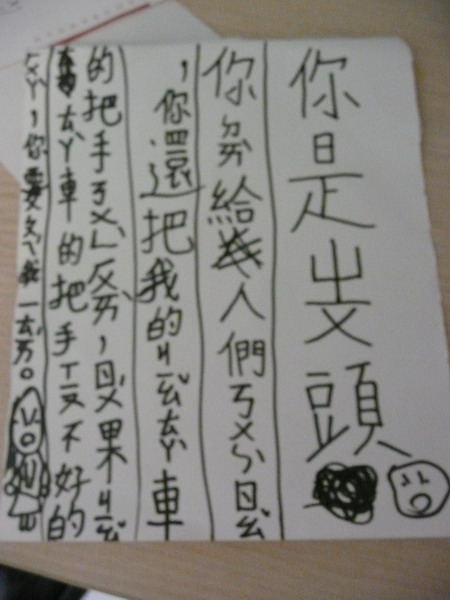 你是ㄓㄨ頭
你給人們
，你還把我的ㄐㄧㄠˇㄊㄚˋ車
的把手ㄋㄨㄥˋ，ㄖㄨˊ果ㄐㄧㄠˇ
ㄊㄚˋ車的把手ㄒㄧㄡ不好的
，你要ㄆㄟˊ我一ㄊㄞˊ。